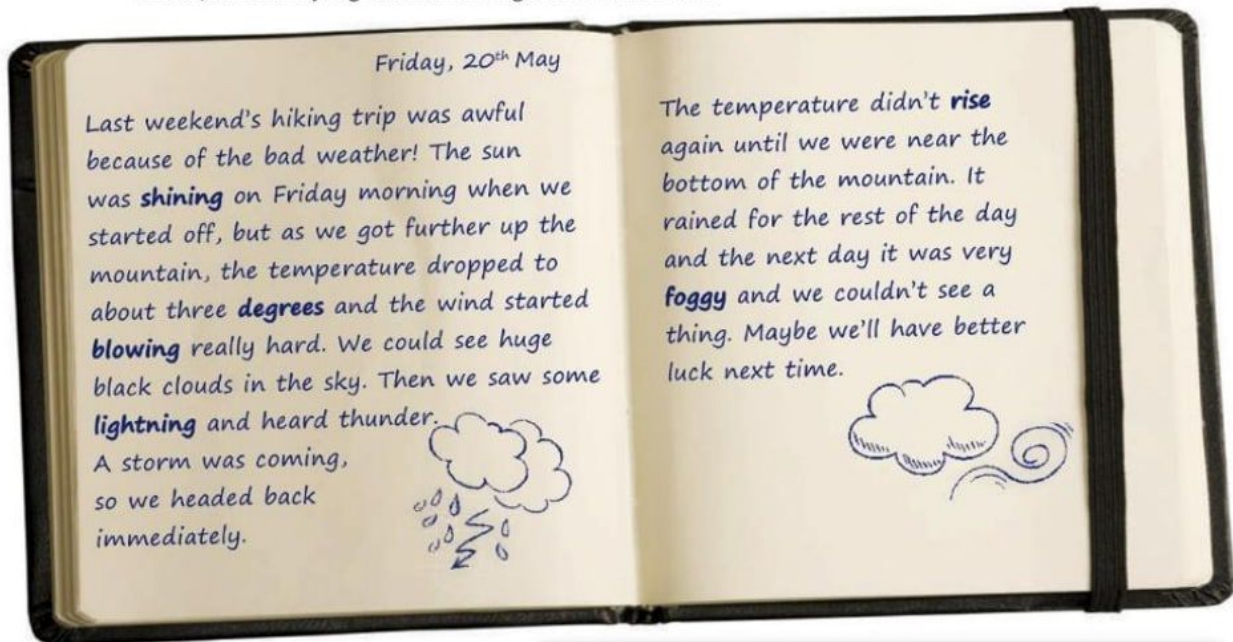 Friday, 20th May
Last weekend's hiking trip was awful
because of the bad weather! The sun
was shining on Friday morning when we
started off, but as we got further up the
mountain, the temperature dropped to
about three degrees and the wind started
blowing really hard. We could see huge
black clouds in the sky. Then we saw some
lightning and heard thunder.
A storm was coming,
so we headed back
immediately.
The temperature didn't rise
again until we were near the
bottom of the mountain. It
rained for the rest of the day
and the next day it was very
foggy and we couldn't see a
thing. Maybe we'll have better
luck next time.